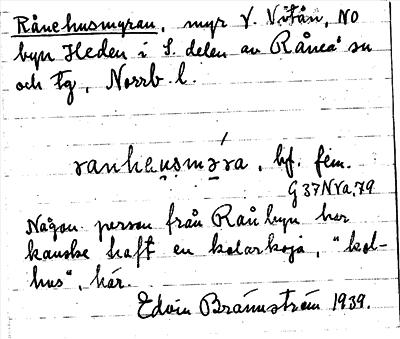 Rånehusmyran, myr V. Vitån, NO
byn Heden i S. delen av Råneå sn
och Tg, Norrb. l.
ranhausmyra, bf. fem.
G37NVa,79
Någon person från Rånbyn har
kanske haft en kolarkoja, "kol-
hus", här.
Edvin Brännström 1939.